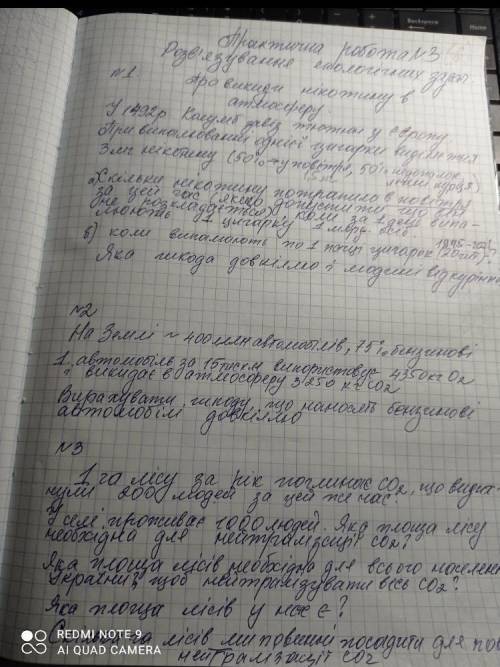 Практична робота №3
Розв'язування екологічних задач
№1
Про викиди нікотину в
атмосферу
У 1492р Колумб завіз тютюн у Європу
При випалюванні однієї цигарки виділяється
3мг нікотину (50% у повітря, 50%
легені курця)
Скільки нікотину потрапило в повітря
за цей час, якщо допустити, що він
не розкладається, коли за 1 день випа-
люють 1 цигарку 1 млрд. осіб
б) коли випалюють по 1 пачці цигарок (20шт)
Яка шкода довкіллю і людині від куріння
№2
На Землі ~ 400 млн автомобілів, 75% бензинові
1 автомобіль за 15 тис км використовує 4350 кг O2
і викидає в атмосферу 3250 кг CO2
Вирахувати шкоду, що наносять бензинові
автомобілі довкіллю
№3
1 га лісу за рік поглинає CO2, що видих-
нули 200 людей за цей же час
У селі проживає 1000 людей. Яка площа лісу
необхідна для нейтралізації CO2?
Яка площа лісів необхідна для всього населен
України, щоб нейтралізувати весь CO2?
Яка площа лісів у нас є?
Скільки га лісів ми повинні посадити для пов
нейтралізації CO2
REDMI NOTE 9
AI QUAD CAMERA
Backspace
Home